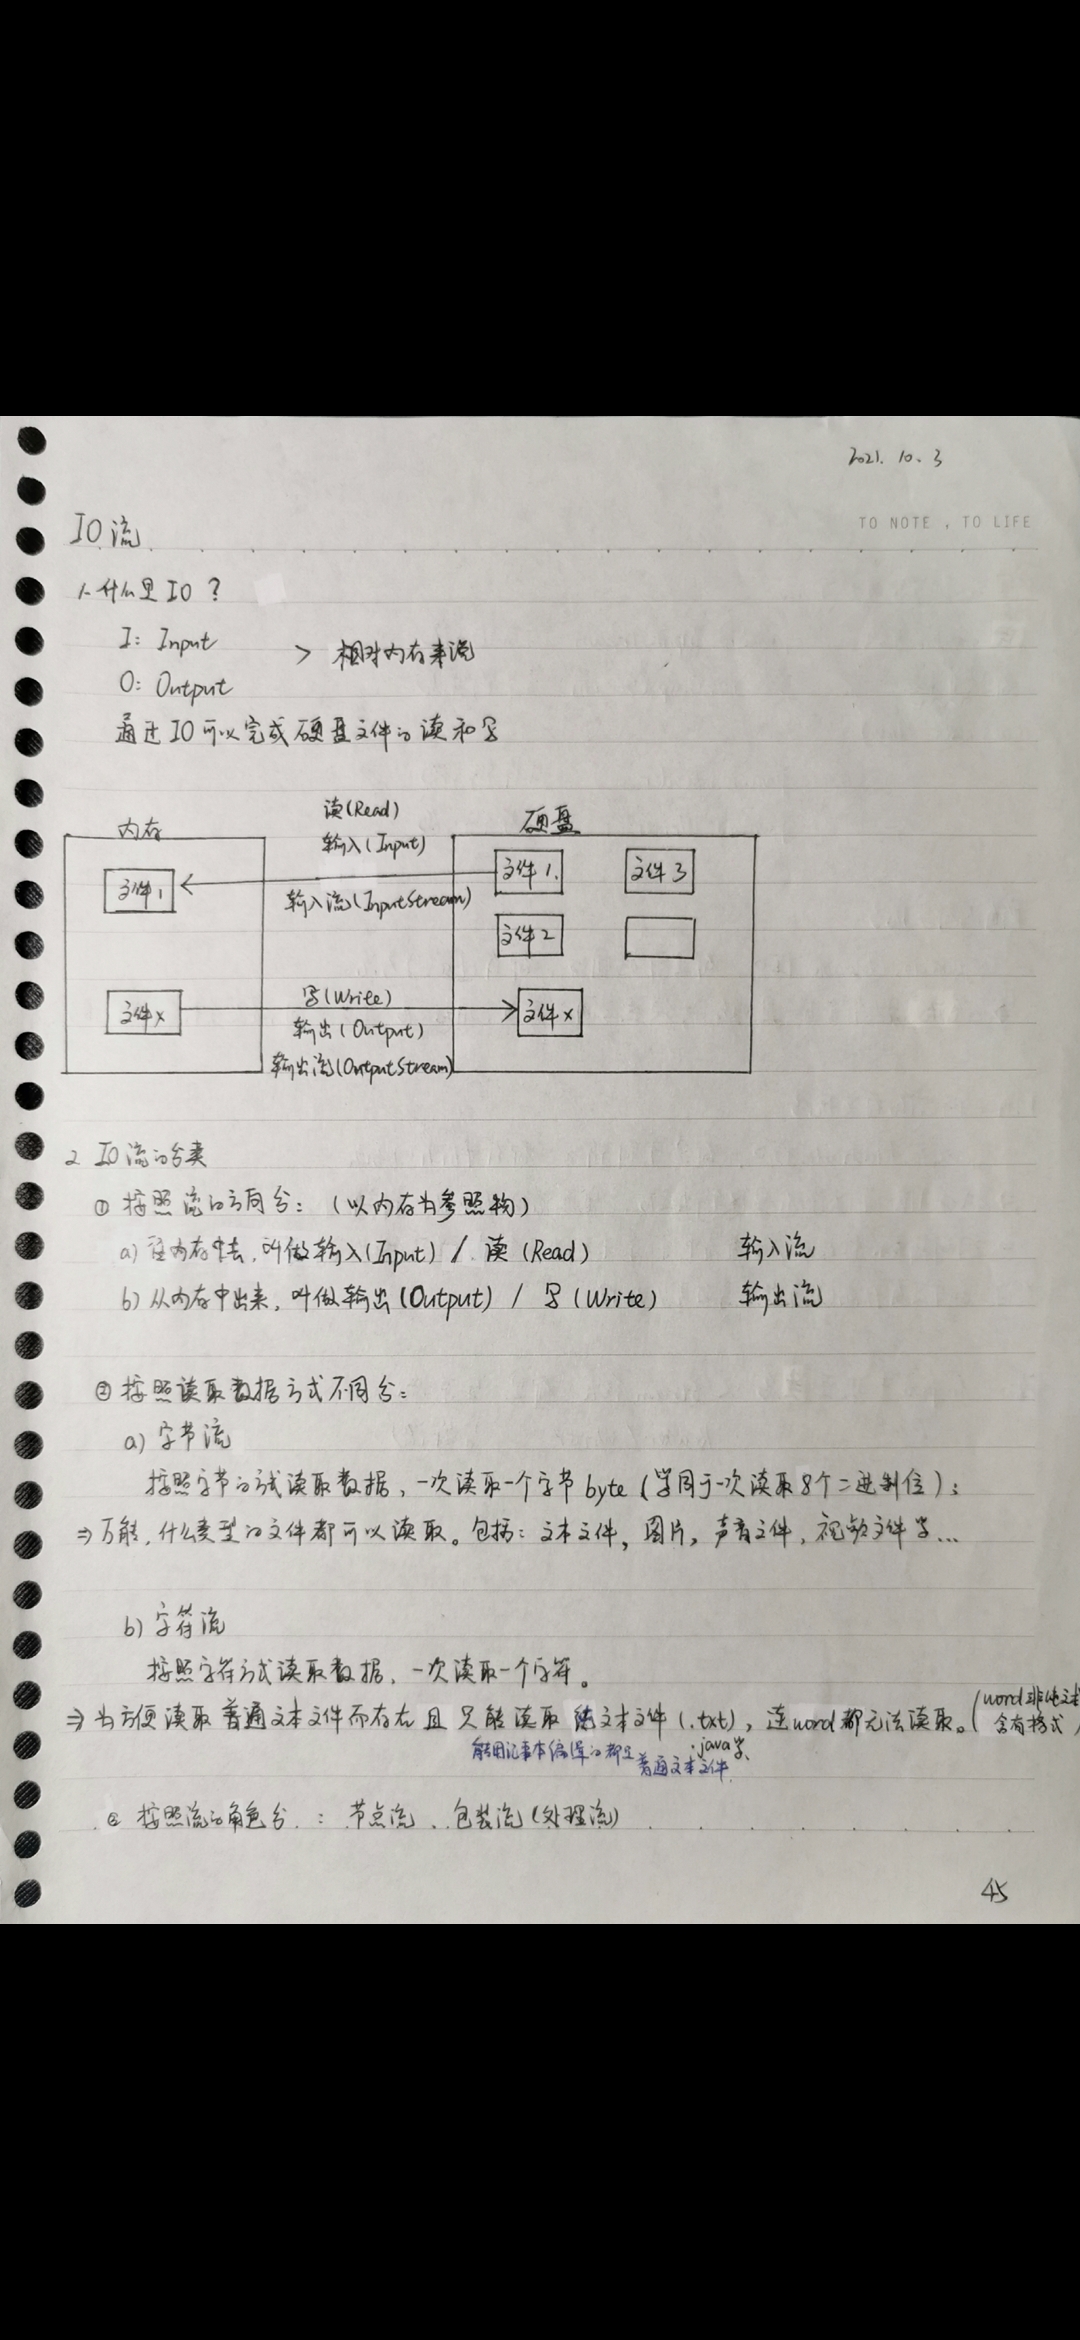 2021. 10. 3
TO NOTE , TO LIFE
IO流
1. 什么是IO？
I: Input
> 相对内存来说
O: Output
通过IO可以完成硬盘文件的读和写
读(Read)
内存
硬盘
输入(Input)
文件1
文件1.
文件3
输入流(InputStream)
文件2
写(Write)
文件x
文件x
输出(Output)
输出流(OutputStream)
2 IO流的分类
① 按照流的方向分：（以内存为参照物）
a) 往内存中去，叫做输入(Input) / 读(Read) 输入流
b) 从内存中出来，叫做输出(Output) / 写(Write) 输出流
② 按照读取数据方式不同分：
a) 字节流
按照字节的方式读取数据，一次读取一个字节byte（等同于一次读取8个二进制位）；
⇒ 万能，什么类型的文件都可以读取。包括：文本文件，图片，声音文件，视频文件等...
b) 字符流
按照字符方式读取数据，一次读取一个字符。
⇒ 为方便读取普通文本文件而存在且只能读取纯文本文件(.txt)，连word都无法读取。(word非纯文本
含有格式)
.java等、
能用记事本编辑的都是普通文本文件
③ 按照流的角色分：节点流、包装流(处理流)
45